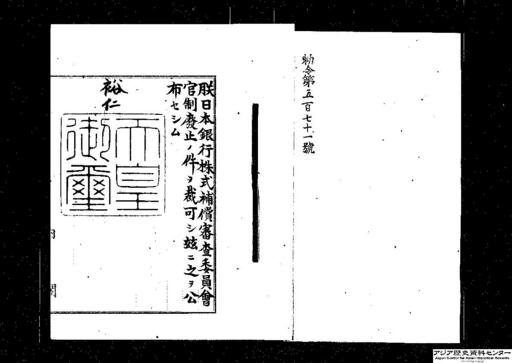 勅令第五百七十一號
朕日本銀行株式補償審査委員會
官制廢止ノ件ヲ裁可シ玆ニ之ヲ公
布セシム
裕仁
天皇
御璽
内閣
アジア歴史資料センター
Japan Center for Asian Historical Records